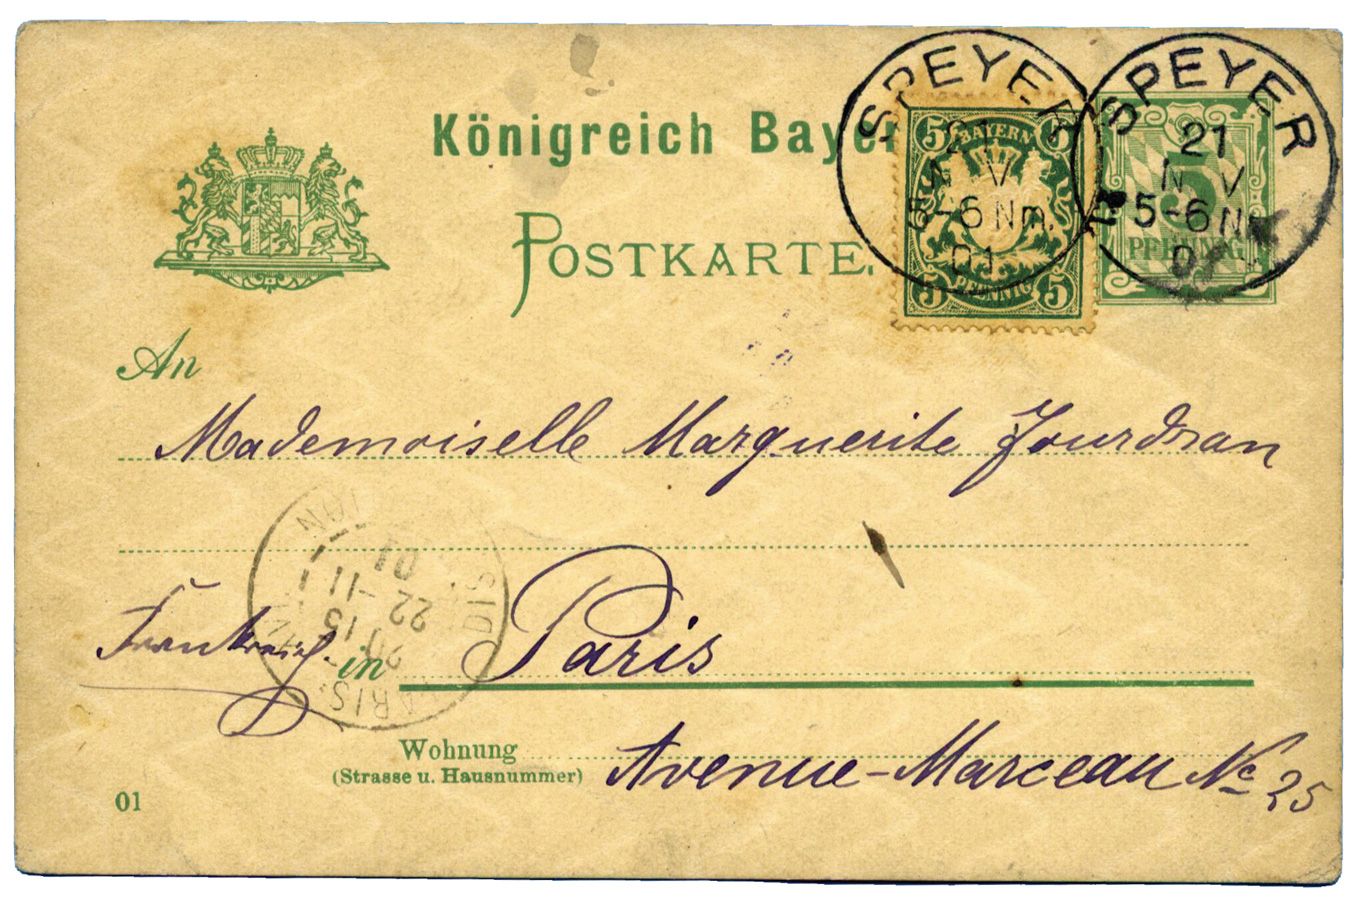 Königreich Bayer
POSTKARTE.
SPEYER
NV
5-6 Nm.
01
5 BAYERN 5
5 PFENNIG 5
SPEYER
21
NV
5-6 N
5
PFENNIG
An
Mademoiselle Marguerite Jourdran
Frankreich. in Paris
22-11
01
Wohnung
(Strasse u. Hausnummer)
Avenue-Marceau No 25
01